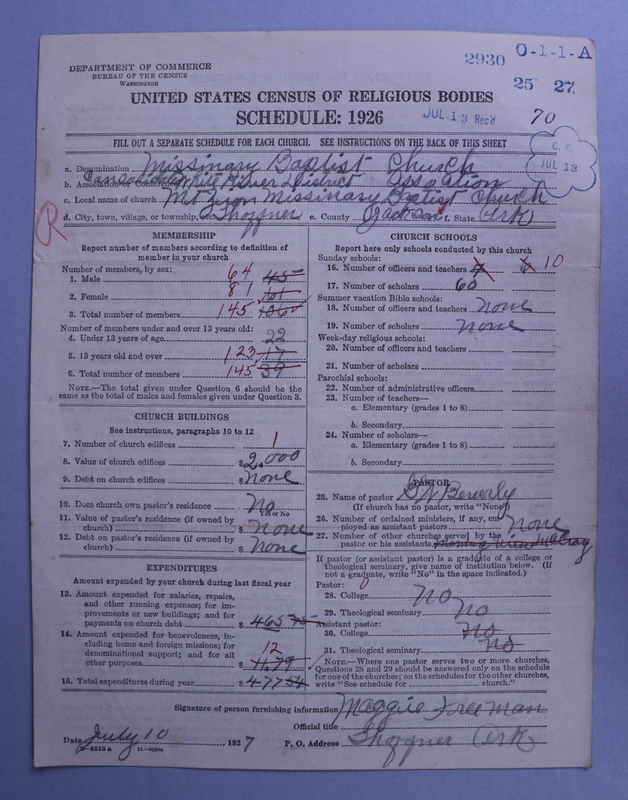 2930 O-1-1-A
DEPARTMENT OF COMMERCE
BUREAU OF THE CENSUS
WASHINGTON
25 27
UNITED STATES CENSUS OF RELIGIOUS BODIES
SCHEDULE: 1926
JUL 13 Rec'd
70
FILL OUT A SEPARATE SCHEDULE FOR EACH CHURCH. SEE INSTRUCTIONS ON THE BACK OF THIS SHEET
C. C.
JUL 13
a. Denomination Missinary Baptist Church
b. Association or Conference White River District Assoation
c. Local name of church Mt Zion Missinary Baptist Church
d. City, town, village, or township, etc. Shoffner e. County Jackson f. State Ark
R
MEMBERSHIP
Report number of members according to definition of
member in your church
Number of members, by sex:
1. Male 64 45
2. Female 81 61
3. Total number of members 145 106
Number of members under and over 13 years old:
4. Under 13 years of age 22
5. 13 years old and over 123 17
6. Total number of members 145 39
NOTE.—The total given under Question 6 should be the
same as the total of males and females given under Question 3.
CHURCH BUILDINGS
See instructions, paragraphs 10 to 12
7. Number of church edifices 1
8. Value of church edifices $ 2,000
9. Debt on church edifices $ none
10. Does church own pastor's residence? No
Yes or No
11. Value of pastor's residence (if owned by
church) $ None
12. Debt on pastor's residence (if owned by
church) $ None
EXPENDITURES
Amount expended by your church during last fiscal year
13. Amount expended for salaries, repairs,
and other running expenses; for im-
provements or new buildings; and for
payments on church debt $ 465 75
14. Amount expended for benevolences, in-
cluding home and foreign missions; for
denominational support; and for all
other purposes 12
$ 11.79
15. Total expenditures during year $ 477 54
CHURCH SCHOOLS
Report here only schools conducted by this church
Sunday schools:
16. Number of officers and teachers 4 6 10
17. Number of scholars 60
Summer vacation Bible schools:
18. Number of officers and teachers none
19. Number of scholars none
Week-day religious schools:
20. Number of officers and teachers
21. Number of scholars
Parochial schools:
22. Number of administrative officers
23. Number of teachers—
a. Elementary (grades 1 to 8)
b. Secondary
24. Number of scholars—
a. Elementary (grades 1 to 8)
b. Secondary
PASTOR
25. Name of pastor G W Beverly
(If church has no pastor, write "None")
26. Number of ordained ministers, if any, em-
ployed as assistant pastors none
27. Number of other churches served by the
pastor or his assistants
If pastor (or assistant pastor) is a graduate of a college or
theological seminary, give name of institution below. (If
not a graduate, write "No" in the space indicated.)
Pastor:
28. College No
29. Theological seminary No
Assistant pastor:
30. College No
31. Theological seminary No
NOTE.—Where one pastor serves two or more churches,
Questions 28 and 29 should be answered only on the schedule
for one of the churches; on the schedules for the other churches,
write "See schedule for church."
Signature of person furnishing information Maggie Freeman
Official title
Date July 10, 1927 P. O. Address Shoffner Ark